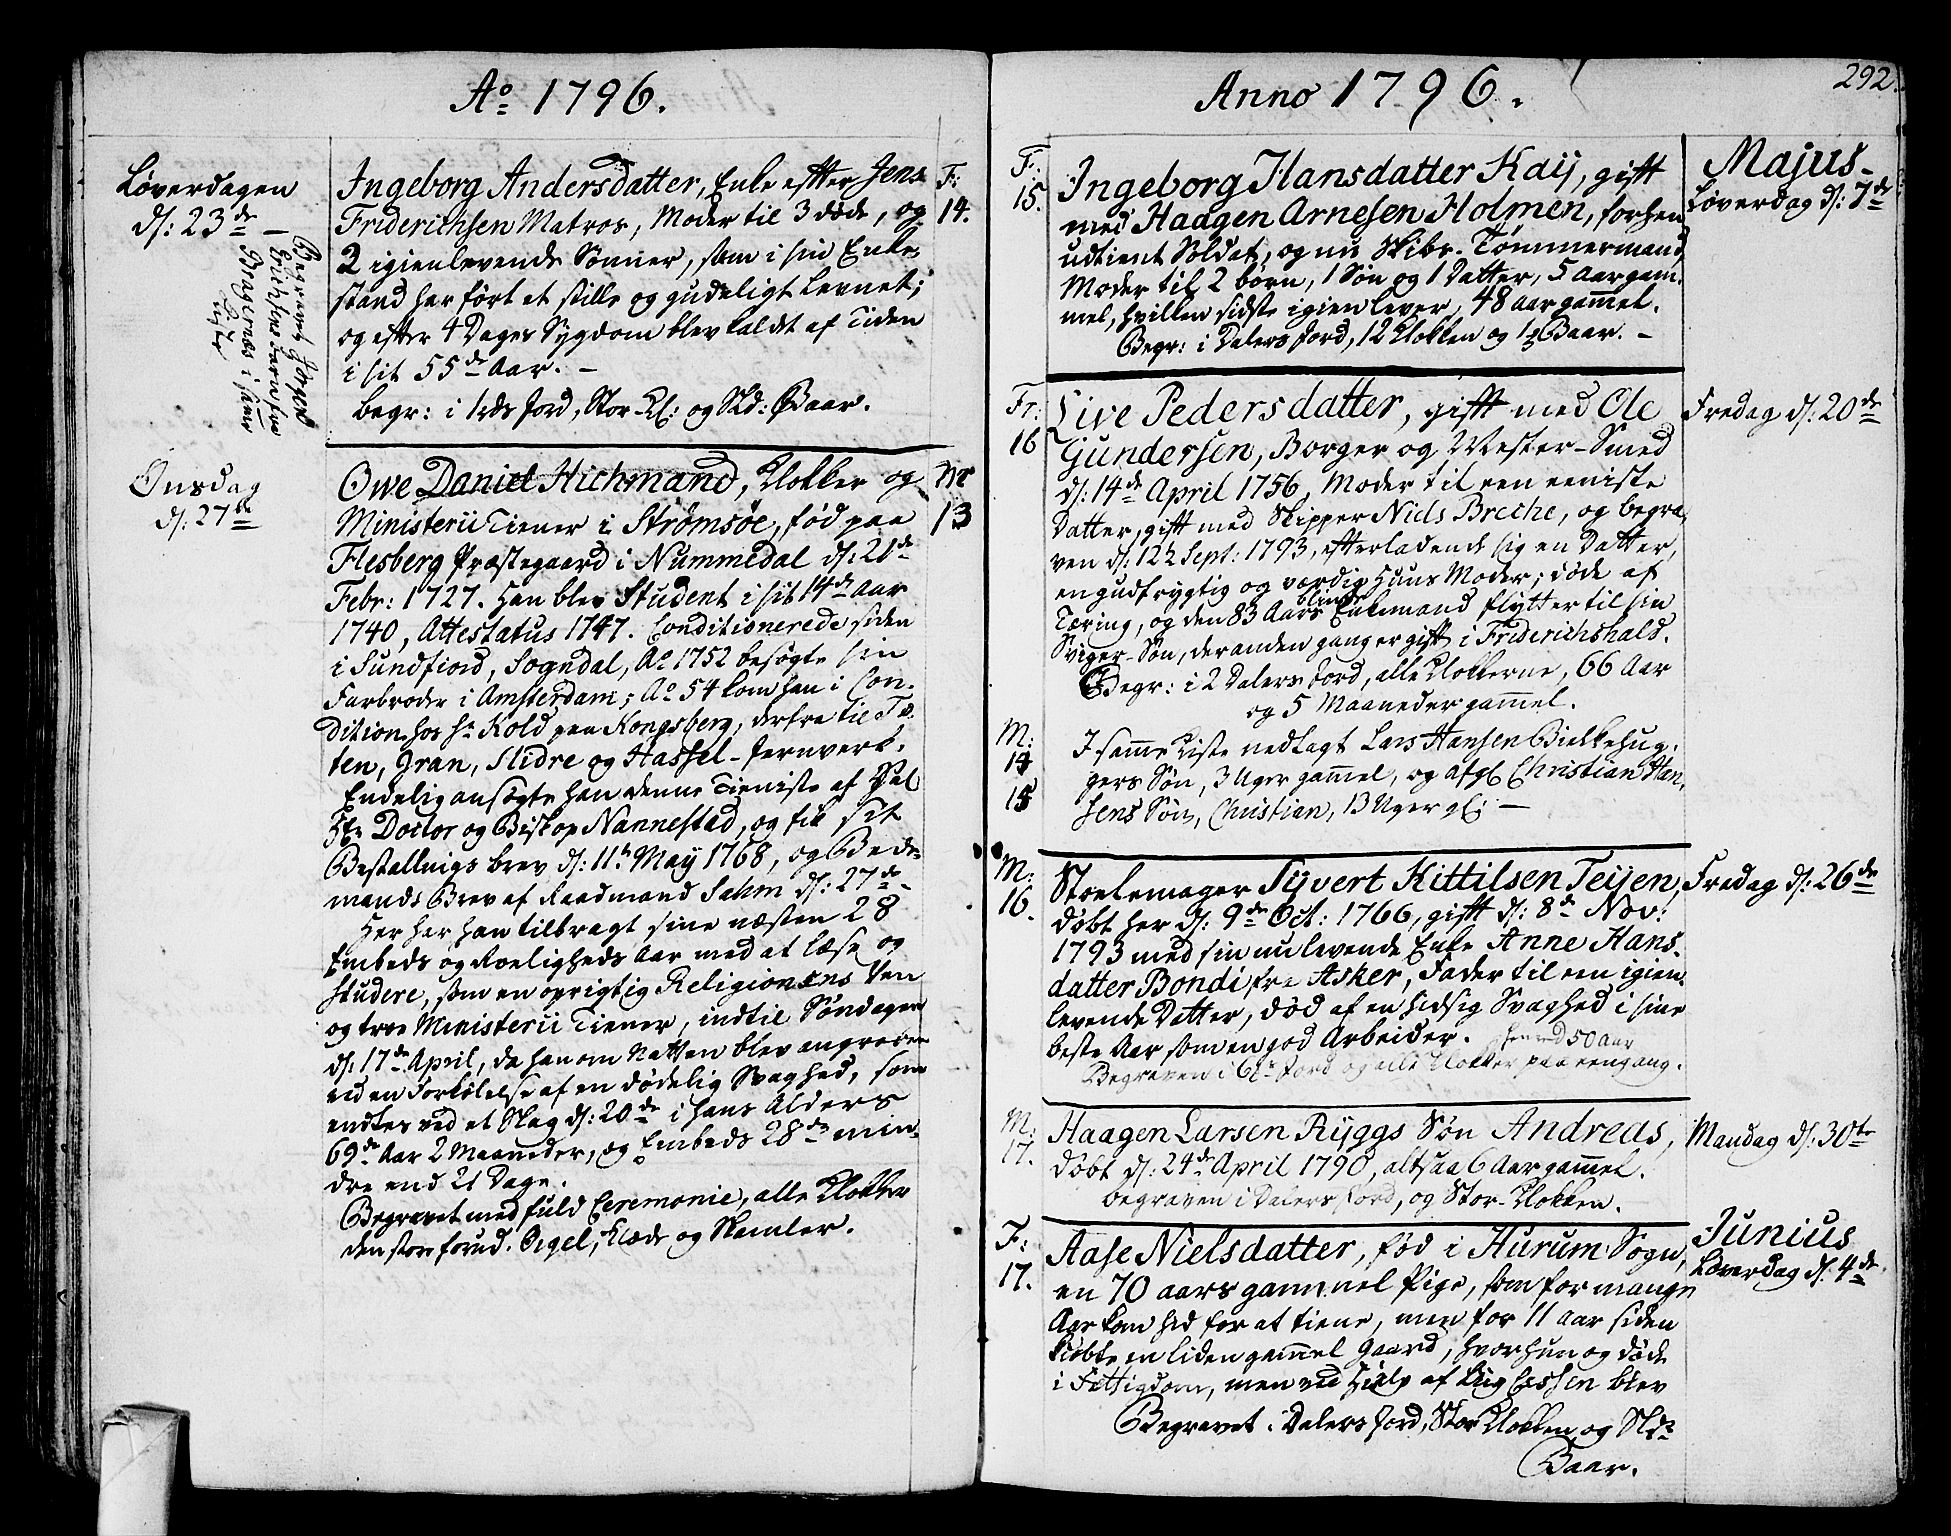 Ao 1796.
Løverdagen
d: 23de –
Ingeborg Andersdatter, Enke efter Jens
F: 14.
Friderichsen Matros, Moder til 3 døde, og
2 igienlevende Sønner, som i sin Enke-
stand har ført et stille og gudeligt Levnet;
og efter 4 Dages Sygdom blev kaldet af Tiden
i sit 55de Aar. –
begr: i 1rds Jord, Stor Kl: og Skd: Baar.
Begravet Jørgen
Erichsens barn fra
Bragernæs i samme
Liste
Onsdag
d: 27de
Owe Daniel Hichmand, Klokker og
M 13
Ministerii Tiener i Strømsøe, fød paa
Flesberg Præstegaard i Nummedal d: 21de
Febr: 1727. Han blev Student i sit 14de Aar
1740, Attestatus 1747. Conditionerede siden
i Sundfiord, Sogndal, Ao 1752 besøgte sin
Farbroder i Amsterdam; Ao 54 kom han i Con-
dition hos Hr Kold paa Kongsberg, derfra til To-
ten, Gran, Slidre og Hassel-Jernverk.
Endelig ansøgte han denne Tieniste af Sal
Hr Doctor og Biskop Nannestad, og fik sit
Bestallings brev d: 11te May 1768, og Bede-
mands Brev af Raadmand Sahm d: 27de –
Her har han tilbragt sine næsten 28
Embeds og Roeligheds Aar med at læse og
studere, som en oprigtig Religionens Ven
og troe Ministerii Tiener, indtil Søndagen
d: 17de April, da han om Natten blev angreben
ved en Forkølelse af en dødelig Svaghed, som
endtes ved et Slag d: 20de i hans Alders
69de Aar 2 Maaneder, og Embeds 28de min-
dre end 21 Dage.
Begravet med fuld Ceremonie, alle Klokker
den store forud. Orgel, Klæde og Skamler.
Anno 1796.
292.
F: 15.
Ingeborg Hansdatter Kaij, gift
Majus –
Løverdag d: 7de
med Haagen Arnesen Holmen, forhen
udtient Soldat, og nu Skibs-Tømmermand,
Moder til 2 børn, 1 Søn og 1 Datter, 5 Aar gam-
mel, hvilken sidste igien lever, 48 aar gammel.
Begr: i Dalers Jord, 12 Klokken og 1s Baar. –
Fr: 16
Live Pedersdatter, gift med Ole
Fredag d: 20de
Gundersen, Borger og Mester-Smed
d: 14de April 1756, Moder til een eeniste
Datter, gift med Skipper Niels Breche, og begra-
ven d: 12 Sept: 1793, efterladende sig en Datter,
en gudfrygtig og værdig Huus Moder; døde af
Tæring, og den 83 Aars blinde Enkemand flytter til sin
Sviger-Søn, der anden gang er gift i Friderichshald.
Begr: i 2 Dalers Jord, alle Klokkerne, 66 Aar
og 5 Maaneder gammel.
M: 14
I samme Liste nedlagt Lars Hansen Birkkehug-
15
gers Søn, 3 Uger gammel, og afgl Christian Han-
sens Søn, Christian, 13 Uger gl: –
M: 16.
Stoelemager Syvert Kittilsen Teijen,
Fredag d: 26de
døbt her d: 9de Oct: 1766, gift d: 8de Nov:
1793 med sin nu levende Enke Anne Hans-
datter Bondi fra Asker, Fader til een igien-
levende Datter, død af en hidsig Svaghed i sine
beste Aar som en god Arbeider. 50 Aar
Begraven i Jord og alle Klokker paa eengang.
M: 17.
Haagen Larsen Ryggs Søn Andreas,
Mandag d: 30te
døbt d: 24de April 1790, altsaa 6 Aar gammel.
begraven i Dalers Jord, og Stor-Klokken.
F: 17.
Aase Nielsdatter, fød i Hurum Sogn,
Junius
Løverdag d: 4de
en 70 aars gammel Pige, som for mange
Aar kom hid for at tiene, men for 11 aar siden
kiøbte en liden gammel Gaard, hvor hun og døde
i Fattigdom, men ved Hielp af Liig Cassen blev
Begravet i Dalers Jord, Stor Klokken og Skd:
Baar.